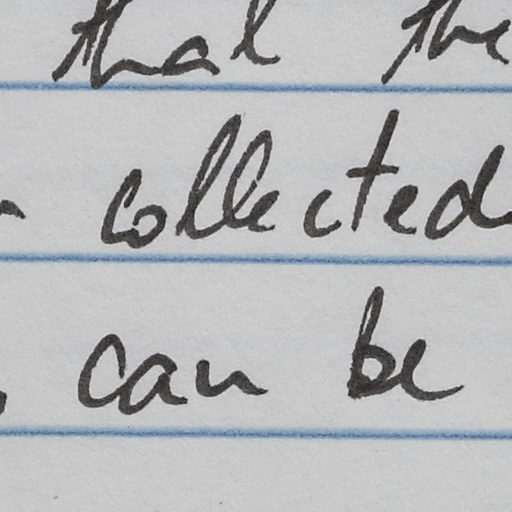 that the
collected
can be